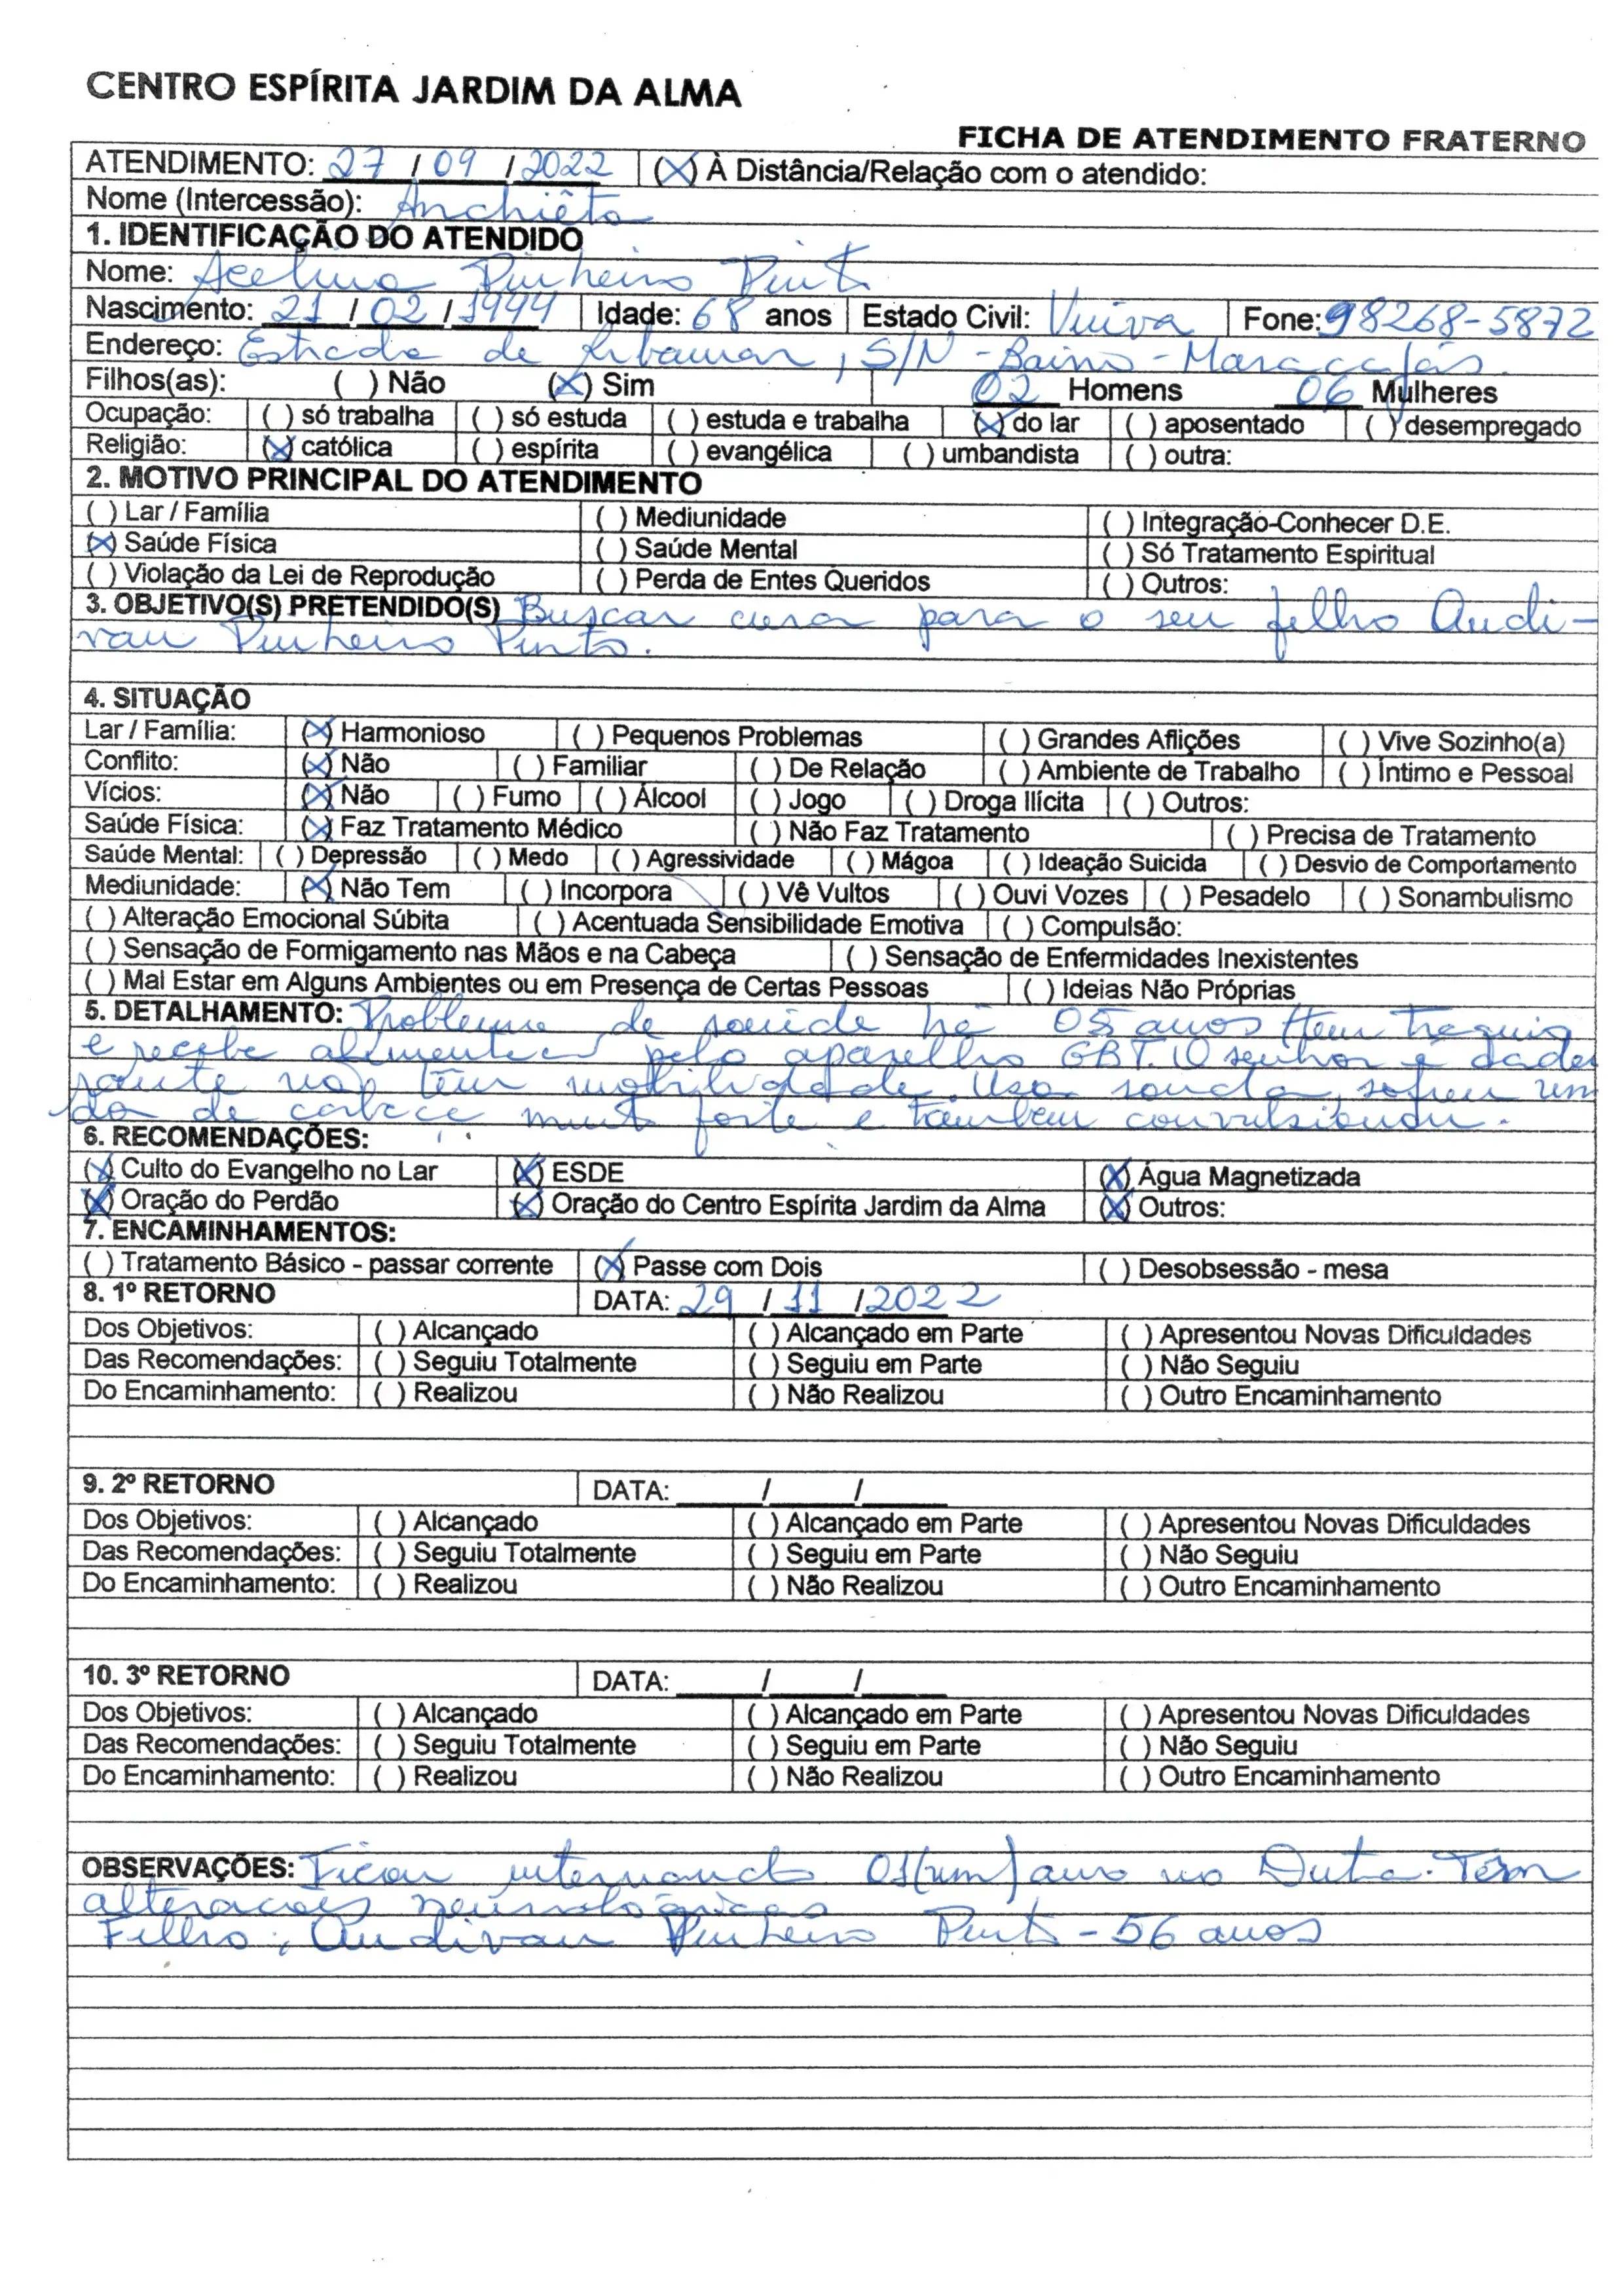 CENTRO ESPÍRITA JARDIM DA ALMA
FICHA DE ATENDIMENTO FRATERNO
ATENDIMENTO: 27 / 09 / 2022 (X) À Distância/Relação com o atendido:
Nome (Intercessão): Anchiêta
1. IDENTIFICAÇÃO DO ATENDIDO
Nome: Acelina Pinheiro Pinto
Nascimento: 21 / 02 / 1944 Idade: 68 anos Estado Civil: Viúva Fone: 98268-5872
Endereço: Estrada de Ribamar, S/N - Bairro - Maracajás.
Filhos(as): ( ) Não (X) Sim 02 Homens 06 Mulheres
Ocupação: ( ) só trabalha ( ) só estuda ( ) estuda e trabalha (X) do lar ( ) aposentado ( ) desempregado
Religião: (X) católica ( ) espírita ( ) evangélica ( ) umbandista ( ) outra:
2. MOTIVO PRINCIPAL DO ATENDIMENTO
( ) Lar / Família ( ) Mediunidade ( ) Integração-Conhecer D.E.
(X) Saúde Física ( ) Saúde Mental ( ) Só Tratamento Espiritual
( ) Violação da Lei de Reprodução ( ) Perda de Entes Queridos ( ) Outros:
3. OBJETIVO(S) PRETENDIDO(S) Buscar cura para o seu filho Audi-
van Pinheiro Pinto.
4. SITUAÇÃO
Lar / Família: (X) Harmonioso ( ) Pequenos Problemas ( ) Grandes Aflições ( ) Vive Sozinho(a)
Conflito: (X) Não ( ) Familiar ( ) De Relação ( ) Ambiente de Trabalho ( ) Íntimo e Pessoal
Vícios: (X) Não ( ) Fumo ( ) Álcool ( ) Jogo ( ) Droga Ilícita ( ) Outros:
Saúde Física: (X) Faz Tratamento Médico ( ) Não Faz Tratamento ( ) Precisa de Tratamento
Saúde Mental: ( ) Depressão ( ) Medo ( ) Agressividade ( ) Mágoa ( ) Ideação Suicida ( ) Desvio de Comportamento
Mediunidade: (X) Não Tem ( ) Incorpora ( ) Vê Vultos ( ) Ouvi Vozes ( ) Pesadelo ( ) Sonambulismo
( ) Alteração Emocional Súbita ( ) Acentuada Sensibilidade Emotiva ( ) Compulsão:
( ) Sensação de Formigamento nas Mãos e na Cabeça ( ) Sensação de Enfermidades Inexistentes
( ) Mal Estar em Alguns Ambientes ou em Presença de Certas Pessoas ( ) Ideias Não Próprias
5. DETALHAMENTO: Problema de saúde há 05 anos tem
e recebe pelo aparelho GBT. O senhor é cadei
rante não têm mobilidade. Usa sonda, sofreu um
de cabeça muito forte e também convulsionou.
6. RECOMENDAÇÕES:
(X) Culto do Evangelho no Lar (X) ESDE (X) Água Magnetizada
(X) Oração do Perdão (X) Oração do Centro Espírita Jardim da Alma (X) Outros:
7. ENCAMINHAMENTOS:
( ) Tratamento Básico - passar corrente (X) Passe com Dois ( ) Desobsessão - mesa
8. 1º RETORNO DATA: 29 / 11 / 2022
Dos Objetivos: ( ) Alcançado ( ) Alcançado em Parte ( ) Apresentou Novas Dificuldades
Das Recomendações: ( ) Seguiu Totalmente ( ) Seguiu em Parte ( ) Não Seguiu
Do Encaminhamento: ( ) Realizou ( ) Não Realizou ( ) Outro Encaminhamento
9. 2º RETORNO DATA: / /
Dos Objetivos: ( ) Alcançado ( ) Alcançado em Parte ( ) Apresentou Novas Dificuldades
Das Recomendações: ( ) Seguiu Totalmente ( ) Seguiu em Parte ( ) Não Seguiu
Do Encaminhamento: ( ) Realizou ( ) Não Realizou ( ) Outro Encaminhamento
10. 3º RETORNO DATA: / /
Dos Objetivos: ( ) Alcançado ( ) Alcançado em Parte ( ) Apresentou Novas Dificuldades
Das Recomendações: ( ) Seguiu Totalmente ( ) Seguiu em Parte ( ) Não Seguiu
Do Encaminhamento: ( ) Realizou ( ) Não Realizou ( ) Outro Encaminhamento
OBSERVAÇÕES: Ficou internado 01(um) ano no Dutra. Tem
alterações neurológicas
Filho: Audivan Pinheiro Pinto - 56 anos